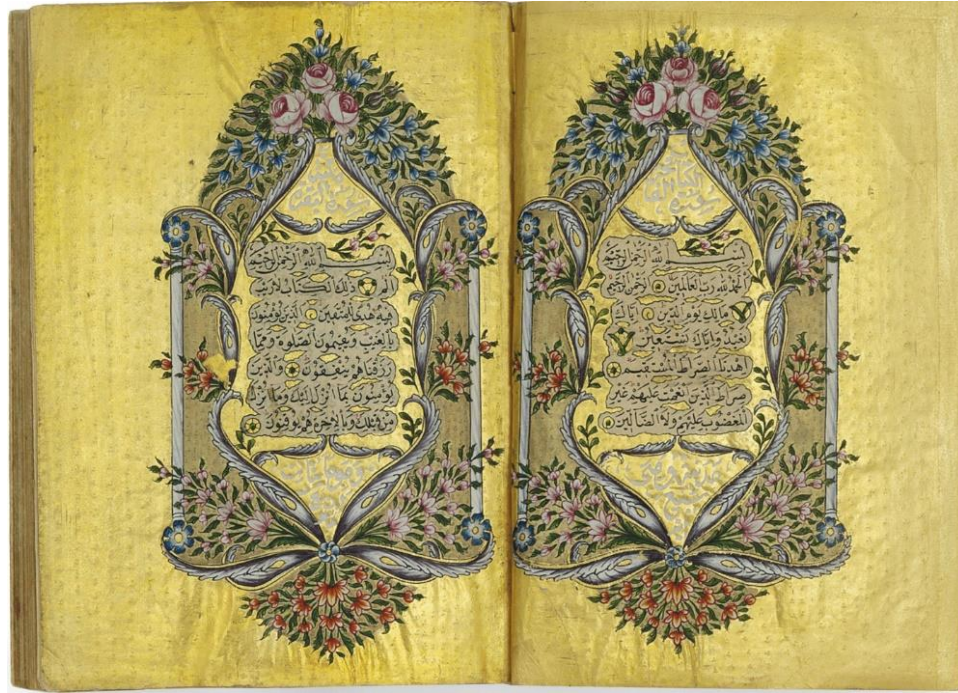 سورة
بسم الله الرحمن الرحيم
الحمد لله رب العالمين الرحمن الرحيم
مالك يوم الدين اياك
نعبد واياك نستعين
اهدنا الصراط المستقيم
صراط الذين انعمت عليهم غير
المغضوب عليهم ولا الضالين
سورة البقرة
بسم الله الرحمن الرحيم
الم ذلك الكتاب لا ريب
فيه هدى للمتقين الذين يؤمنون
بالغيب ويقيمون الصلوة ومما
رزقناهم ينفقون والذين
يؤمنون بما انزل اليك وما انزل
من قبلك وبالاخرة هم يوقنون